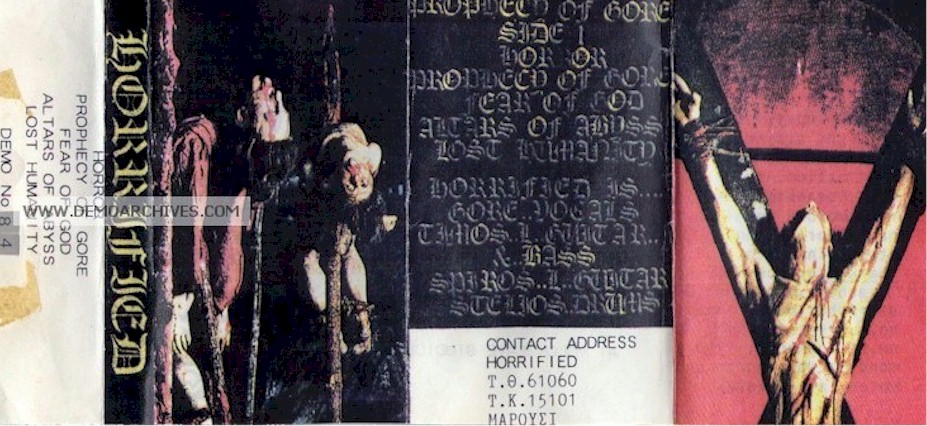 HORRO
PROPHECY OF GORE
FEAR OF GOD
ALTARS OF ABYSS
LOST HUMANITY
DEMO No 84
WWW.DEMOARCHIVES.COM
HORRIFIED
PROPHECY OF GORE
SIDE 1
HOR OR
PROPHECY OF GORE
FEAR OF GOD
ALTARS OF ABYSS
LOST HUMANITY
HORRIFIED IS....
GORE..VOCALS
TIMOS.L.GUITAR..
& BASS
SPIROS..L..GUITAR
STELIOS.DRUMS
CONTACT ADDRESS
HORRIFIED
Τ.Θ.61060
Τ.Κ.15101
ΜΑΡΟΥΣΙ